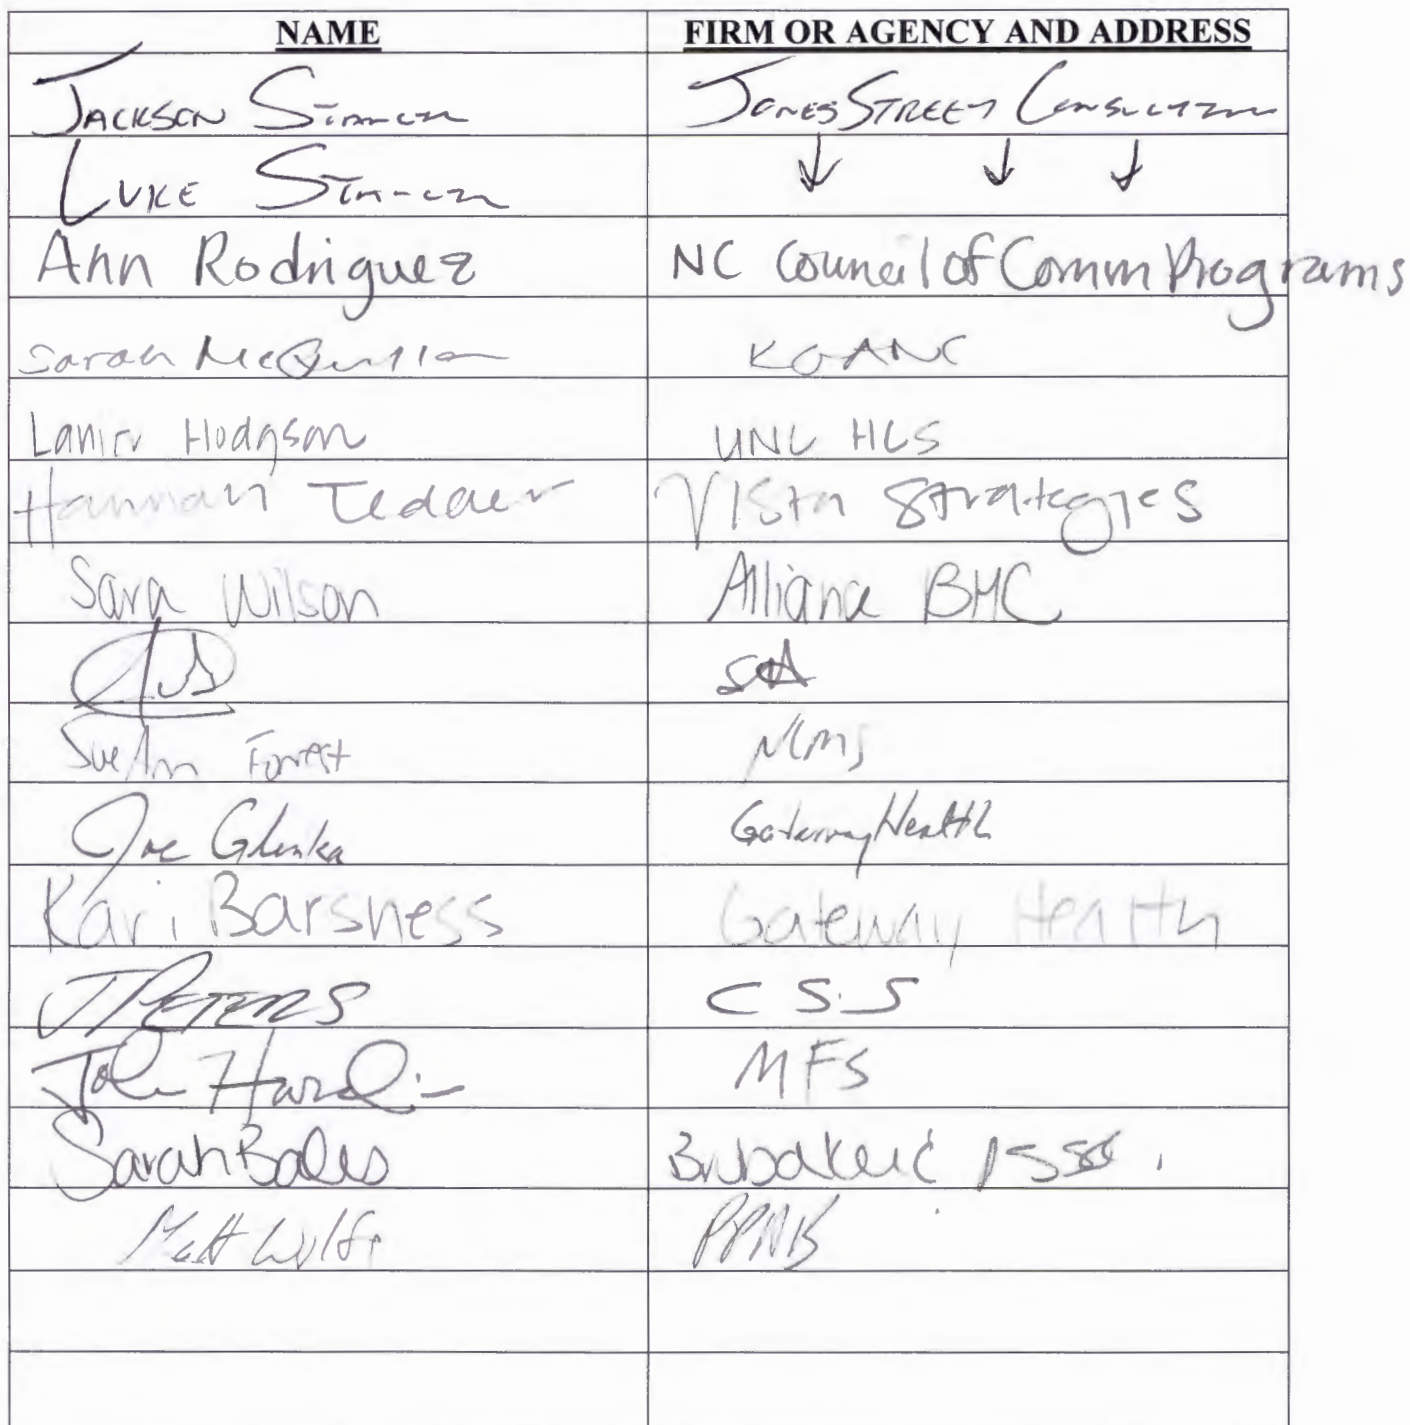 NAME FIRM OR AGENCY AND ADDRESS
JACKSON JONES STREET CONSULTING
LUKE
Ann Rodriguez NC Council of Comm Programs
Sarah KGANC
Lanier Hodgson UNC HCS
Hannah Tedder Vista Strategies
Sara Wilson Alliance BHC
SueAnn Forrest NCMS
Joe Glinka Gateway Health
Kari Barsness Gateway Health
J PETERS CSS
John Hardin MFS
Sarah Bales Brubaker & Assoc.
Matt Wolfe PPAB